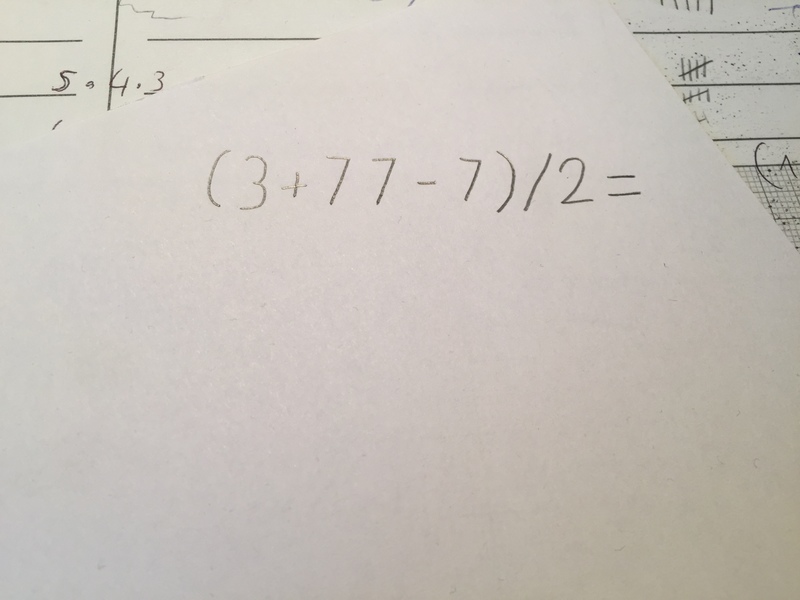 5.4.3
(3+77-7)/2=